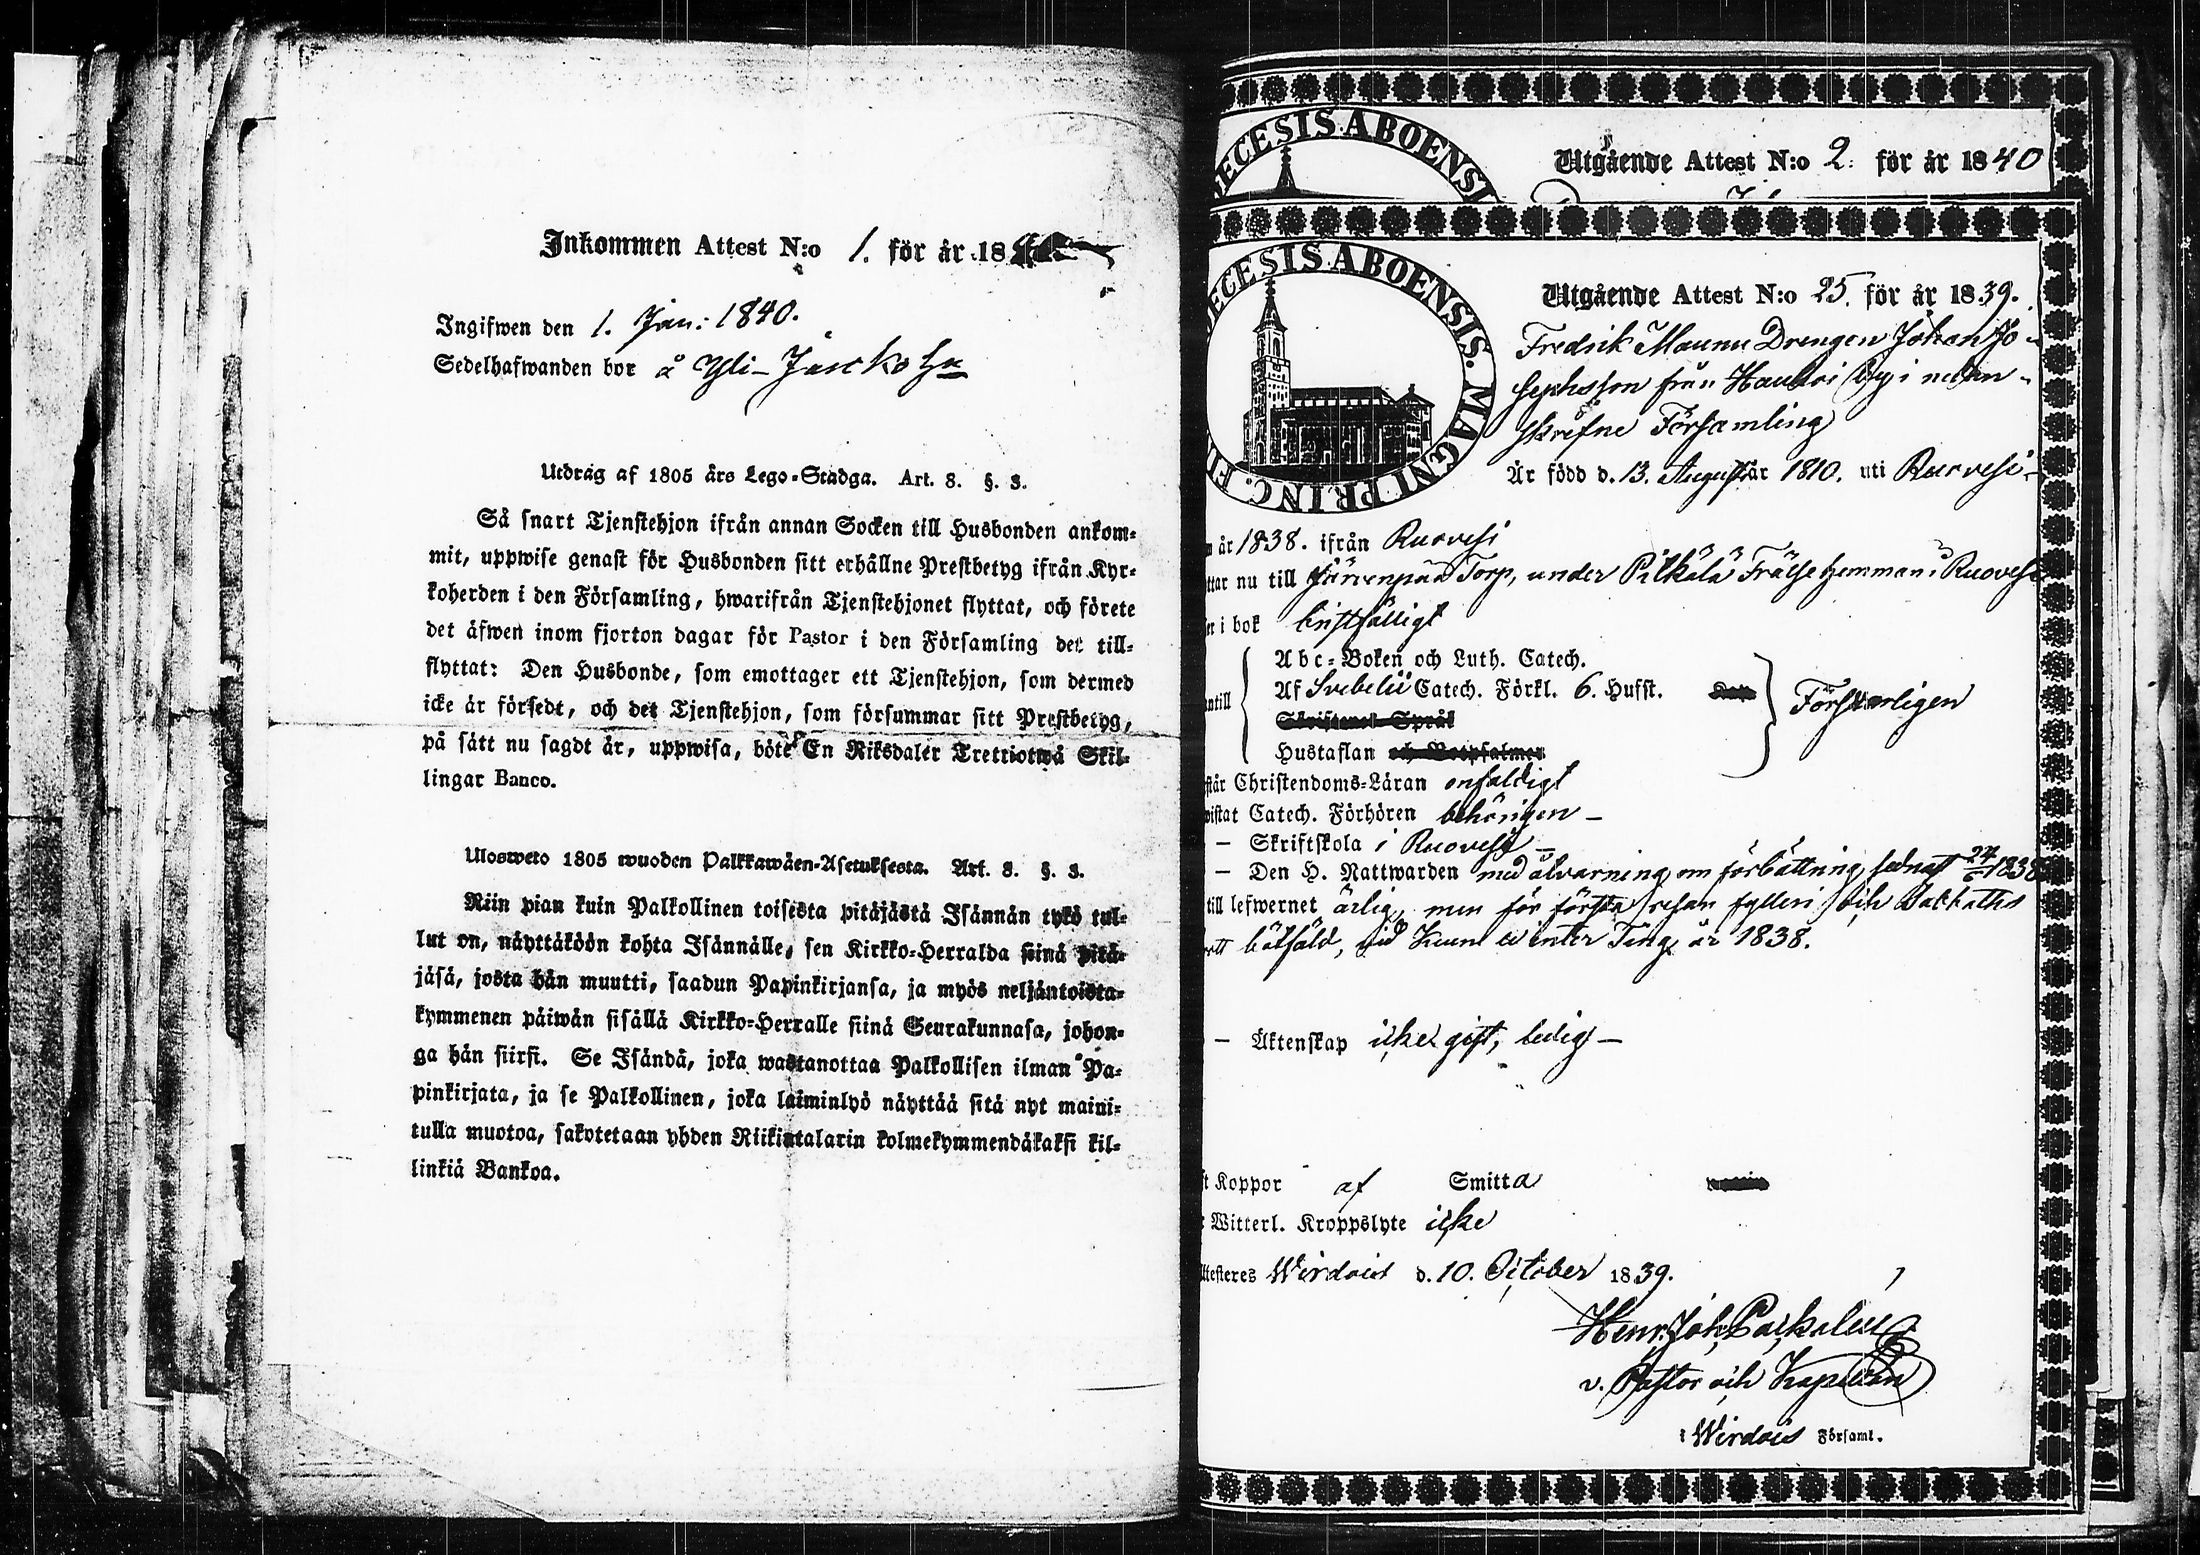 Inkommen Attest N:o 1. för år 18
Ingifwen den 1. Jan: 1840.
Sedelhafwanden bor å Yli-
Utdrag af 1805 års Lego-Stadga. Art. 8. §. 3.
Så snart Tjenstehjon ifrån annan Socken till Husbonden ankom-
mit, uppwise genast för Husbonden sitt erhållne Prestbetyg ifrån Kyr-
koherden i den Församling, hwarifrån Tjenstehjonet flyttat, och förete
det äfwen inom fjorton dagar för Pastor i den Församling det till-
flyttat: Den Husbonde, som emottager ett Tjenstehjon, som dermed
icke är försedt, och det Tjenstehjon, som försummar sitt Prestbetyg,
på sätt nu sagdt är, uppwisa, böte En Riksdaler Trettiotwå Skil-
lingar Banco.
Ulosweto 1805 wuoden Palkkawäen-Asetuksesta. Art. 8. §. 3.
Niin pian kuin Palkollinen toisesta pitäjästä Isännän tykö tul-
lut on, näyttäköön kohta Isännälle, sen Kirkko-Herralda siinä pitä-
jäsä, josta hän muutti, saadun Papinkirjansa, ja myös neljäntoista-
kymmenen päiwän sisällä Kirkko-Herralle siinä Seurakunnasa, johon-
ga hän siirsi. Se Isändä, joka wastanottaa Palkollisen ilman Pa-
pinkirjata, ja se Palkollinen, joka laiminlyö näyttää sitä nyt maini-
tulla muotoa, sakotetaan yhden Riikintalarin kolmekymmendäkaksi kil-
linkiä Bankoa.
ECESIS ABOENSI
Utgående Attest N:o 2. för år 1840
ECESIS ABOENSIS. MAGNI PRINC. FI
Utgående Attest N:o 25. för år 1839.
Fredrik Maunu Drengen Johan Jo-
sephsson från by i nedan-
skrefne Församling
Är född d. 13. Augusti år 1810. uti Ruovesi
år 1838. ifrån Ruovesi
ttar nu till Järvenpää Torp, under Pilkälä Frälse hemman i Ruovesi
i bok bristfälligt
antill
Abc-Boken och Luth. Catech.
Af Svebelii Catech. Förkl. 6. Hufst.
Skriftenes Språk
Hustaflan och Botpsalmer
Försvarligen
står Christendoms-Läran enfaldigt
wistat Catech. Förhören behörigen –
– Skriftskola i Ruovesi –
– Den H. Nattwarden med alvarning om förbättring sednast 24/6 1838
till lefwernet ärlig, men för första resan fylleri och Sabbaths
brott bötfäld, vid Winter Ting år 1838.
– Äktenskap icke gift, ledig –
t Koppor af Smitta
Witterl. Kroppslyte icke
Attesteres Wirdois d. 10. October 1839.
Henr. Joh.
v. Pastor och Kapellan
i Wirdois Församl.